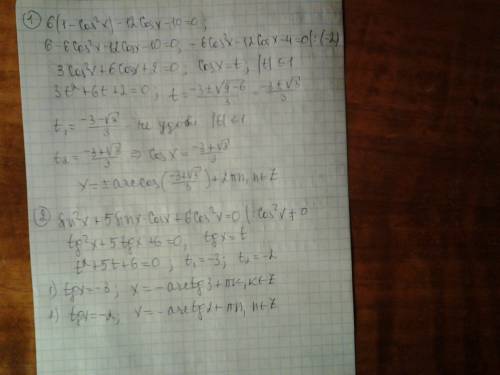 ① 6(1-cos²x)-12cosx-10=0;
6-6cos²x-12cosx-10=0; -6cos²x-12cosx-4=0|:(-2)
3cos²x+6cosx+2=0; cosx=t, |t|≤1
3t²+6t+2=0; t=(-3±√(9-6))/3=(-3±√3)/3
t₁=(-3-√3)/3 не удовл. |t|≤1
t₂=(-3+√3)/3 ⇒ cosx=(-3+√3)/3
x=±arccos((-3+√3)/3)+2πn, n∈Z
② sin²x+5sinx·cosx+6cos²x=0 |:cos²x≠0
tg²x+5tgx+6=0, tgx=t
t²+5t+6=0; t₁=-3; t₂=-2
1) tgx=-3; x=-arctg3+πk, k∈Z
2) tgx=-2; x=-arctg2+πn, n∈Z